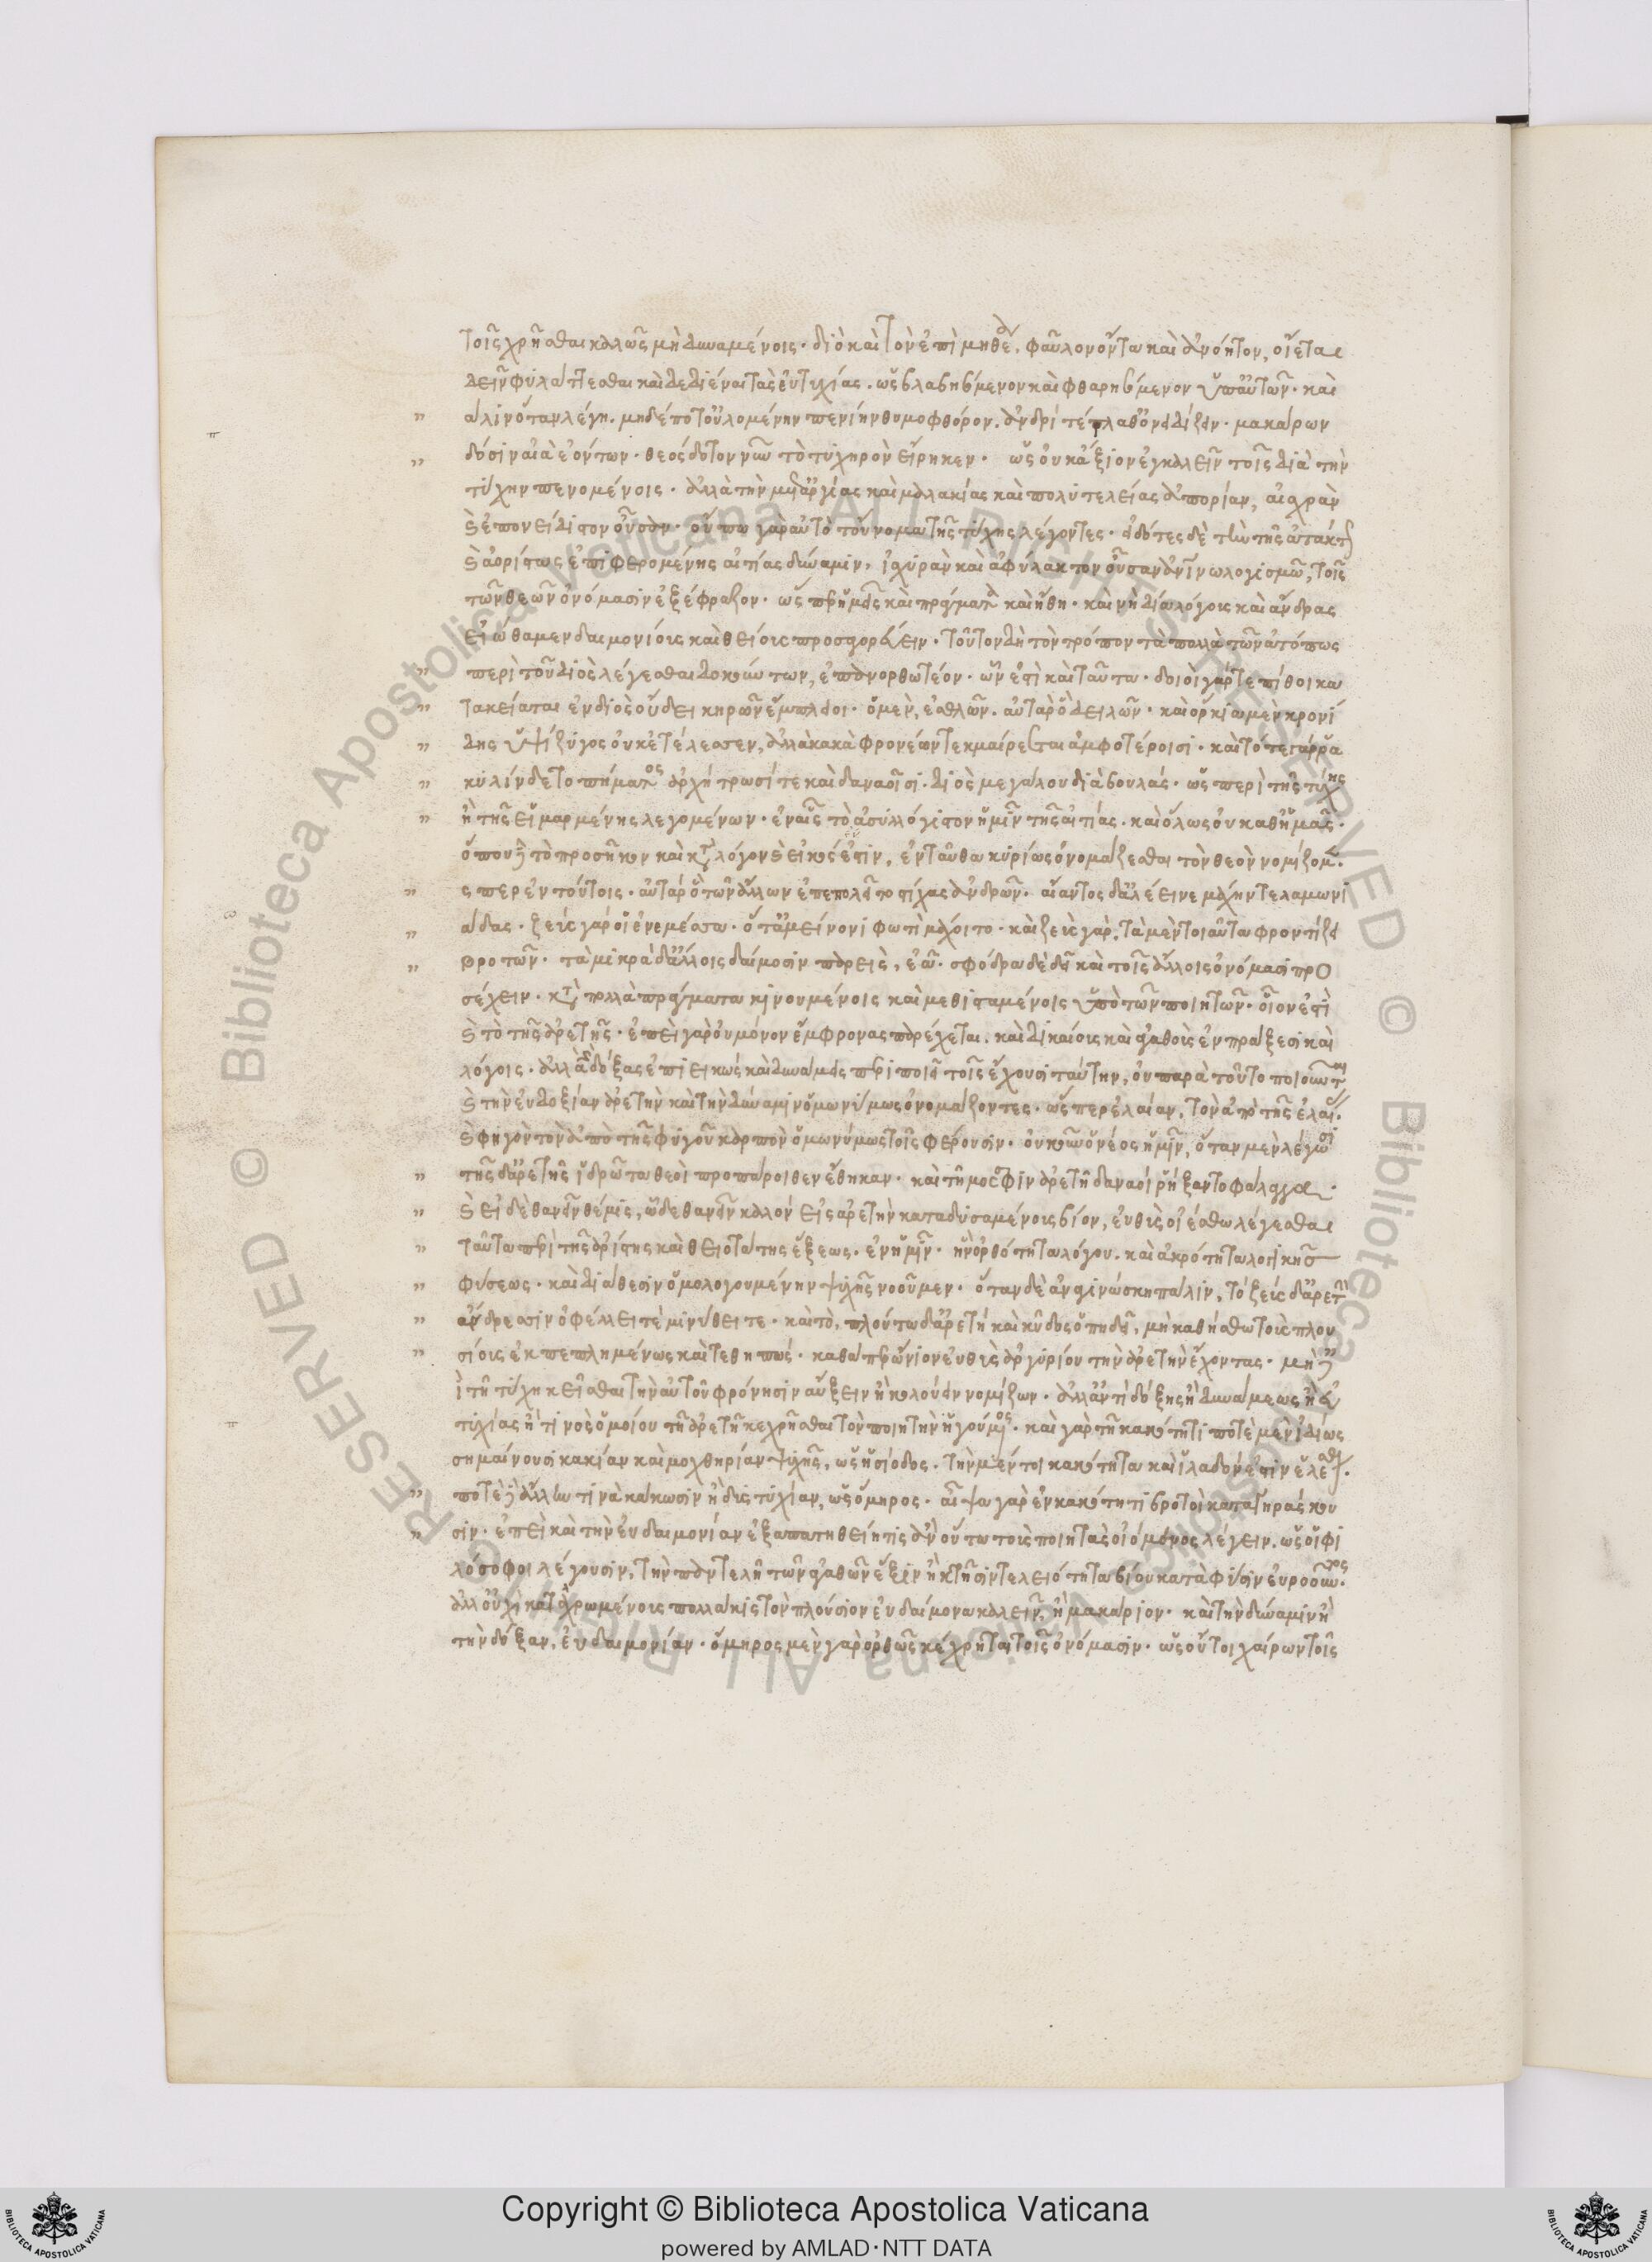 τοῖς χρῆσθαι καλῶς μὴ δυναμένοις· διὸ καὶ τὸν ἐπιμηθέα, φαῦλον ὄντα καὶ ἀνόητον, οἴεται
δεῖν φυλάττεσθαι καὶ δεδιέναι τὰς εὐτυχίας. ὡς βλαβησόμενον καὶ φθαρησόμενον ὑπ' αὐτῶν· καὶ
πάλιν ὅταν λέγῃ. μηδέποτ' οὐλομένην πενίην θυμοφθόρον. ἀνδρὶ τέτλαθ' ὀνειδίζειν· μακάρων
δόσιν αἰὲν ἐόντων· θεόσδοτον νῦν τὸ τυχηρὸν εἴρηκεν· ὡς οὐκ ἄξιον ἐγκαλεῖν τοῖς διὰ τὴν
τύχην πενομένοις· ἀλλὰ τὴν μετ' ἀργίας καὶ μαλακίας καὶ πολυτελείας ἀπορίαν, αἰσχρὰν
καὶ ἐπονείδιστον οὖσαν· οὔπω γὰρ αὐτὸ τοὔνομα τῆς τύχης λέγοντες· εἰδότες δὲ τὴν τῆς ἀτάκτως
καὶ ἀορίστως ἐπιφερομένης αἰτίας δύναμιν, ἰσχυρὰν καὶ ἀφύλακτον οὖσαν ἀνθρωπίνῳ λογισμῷ, τοῖς
τῶν θεῶν ὀνόμασιν ἐξέφραζον· ὡς ἡμεῖς καὶ πράγματα καὶ ἤθη· καὶ νὴ δία λόγοις καὶ ἄνδρας
εἰώθαμεν δαιμονίοις καὶ θείοις προσαγορεύειν· τοῦτον δὴ τὸν τρόπον τὰ πολλὰ τῶν ἀτόπως
περὶ τοῦ διὸς λέγεσθαι δοκούντων, ἐπανορθωτέον· ὧν ἐστὶ καὶ ταῦτα· δοιοὶ γάρ τε πίθοι κα
τακείαται ἐν διὸς οὔδει κηρῶν ἔμπλειοι· ὁ μὲν, ἐσθλῶν. αὐτὰρ ὃ δειλῶν· καὶ ὅρκια μὲν κρονί
δης ὑψίζυγος οὐκ ἐτέλεσσεν, ἀλλὰ κακὰ φρονέων τεκμαίρεται ἀμφοτέροισι· καὶ τότε γάρ ῥα
κυλίνδετο πήματος ἀρχή τρωσί τε καὶ δαναοῖσι. διὸς μεγάλου διὰ βουλάς· ὡς περὶ τῆς τύχης
ἢ τῆς εἱμαρμένης λεγομένων· ἐν αἷς τὸ ἀσυλλόγιστον ἡμῖν τῆς αἰτίας. καὶ ὅλως οὐ καθ' ἡμᾶς·
ὅπου δὲ τὸ προσῆκον καὶ κατὰ λόγον καὶ εἰκός ἐστιν, ἐνταῦθα κυρίως ὀνομάζεσθαι τὸν θεὸν νομίζομεν.
ς περ ἐν τούτοις. αὐτὰρ ὃ τῶν ἄλλων ἐπεπολεῖτο στίχας ἀνδρῶν· αἴαντος δ' ἀλέεινε μάχην τελαμωνι
άδας· ζεὺς γάρ οἱ ἐνεμέσσα. ὅτ' ἀμείνονι φωτὶ μάχοιτο· καὶ ζεὺς γὰρ, τὰ μέν τοιαῦτα φροντίζει
βροτῶν· τὰ μικρὰ δ' ἄλλοις δαίμοσιν παρεὶς, ἐᾷ. σφόδρα δὲ δεῖ καὶ τοῖς ἄλλοις ὀνόμασι προ
σέχειν· κατὰ πολλὰ πράγματα κινουμένοις καὶ μεθισταμένοις ὑπὸ τῶν ποιητῶν· οἷον ἐστὶ
καὶ τὸ τῆς ἀρετῆς· ἐπεὶ γὰρ οὐ μόνον ἔμφρονας παρέχεται. καὶ δικαίους καὶ ἀγαθοὺς ἐν πράξεσι καὶ
λόγοις· ἀλλὰ καὶ δόξας ἐπιεικῶς καὶ δυνάμεις περιποιεῖ τοῖς ἔχουσι ταύτην, οὐ παρὰ τοῦτο ποιοῦνται
καὶ τὴν εὐδοξίαν ἀρετὴν καὶ τὴν δύναμιν ὁμωνύμως ὀνομάζοντες· ὥσπερ ἐλαίαν, τὸν ἀπὸ τῆς ἐλαίας.
καὶ φηγὸν τὸν ἀπὸ τῆς φηγοῦ καρπὸν ὁμωνύμως τοῖς φέρουσιν· οὐκοῦν ὁ νέος ἡμῖν, ὅταν μὲν λέγωσι
τῆς δ' ἀρετῆς ἱδρῶτα θεοὶ προπάροιθεν ἔθηκαν· καὶ τῆμος σφῇν ἀρετῇ δαναοί ῥήξαντο φάλαγγας·
καὶ εἰ δὲ θανεῖν θέμις, ὧδε θανεῖν καλόν εἰς ἀρετὴν καταδυσαμένους βίον, εὐθὺς οἰέσθω λέγεσθαι
ταῦτα περὶ τῆς ἀρίστης καὶ θειοτάτης ἕξεως. ἐν ἡμῖν· ἣν ὀρθότητα λόγου. καὶ ἀκρότητα λογικῆς
φύσεως· καὶ διάθεσιν ὁμολογουμένην ψυχῆς νοοῦμεν· ὅταν δὲ ἀναγινώσκῃ πάλιν, τό ζεὺς δ' ἀρετὴν
ἄνδρεσσιν ὀφέλλει τε μινύθει τε· καὶ τὸ, πλούτῳ δ' ἀρετή καὶ κῦδος ὀπηδεῖ, μὴ καθήσθω τοὺς πλου
σίους ἐκπεπληγμένως καὶ τεθηπώς· καθάπερ ὤνιον εὐθὺς ἀργυρίου τὴν ἀρετὴν ἔχοντας· μὴ δὲ
ἐπὶ τῇ τύχῃ κεῖσθαι τὴν αὑτοῦ φρόνησιν αὔξειν ἢ κολούειν νομίζων· ἀλλ' ἀντὶ δόξης ἢ δυνάμεως ἢ εὐ
τυχίας ἤ τινος ὁμοίου τῇ ἀρετῇ κεχρῆσθαι τὸν ποιητὴν ἡγούμενος· καὶ γὰρ τῇ κακότητι ποτὲ μὲν ἰδίως
σημαίνουσι κακίαν καὶ μοχθηρίαν ψυχῆς, ὡς ἡσίοδος. τὴν μέντοι κακότητα καὶ ἰλαδόν ἐστιν ἑλέσθαι.
ποτὲ δὲ ἄλλην τινὰ κάκωσιν ἢ δυστυχίαν, ὡς ὅμηρος· αἶψα γὰρ ἐν κακότητι βροτοὶ καταγηράσκου
σιν· ἐπεὶ καὶ τὴν εὐδαιμονίαν ἐξαπατηθείη τις ἂν οὕτω τοὺς ποιητὰς οἰόμενος λέγειν. ὡς οἱ φι
λόσοφοι λέγουσιν, τὴν παντελῆ τῶν ἀγαθῶν ἕξιν ἢ κτῆσιν τελειότητα βίου κατὰ φύσιν εὐροοῦντος.
ἀλλ' οὐχὶ καταχρωμένους πολλάκις τὸν πλούσιον εὐδαίμονα καλεῖν, ἢ μακάριον· καὶ τὴν δύναμιν ἢ
τὴν δόξαν, εὐδαιμονίαν· ὅμηρος μὲν γὰρ ὀρθῶς κέχρηται τοῖς ὀνόμασιν· ὡς οὔτοι χαίρων τοῖς
Copyright © Biblioteca Apostolica Vaticana
powered by AMLAD·NTT DATA